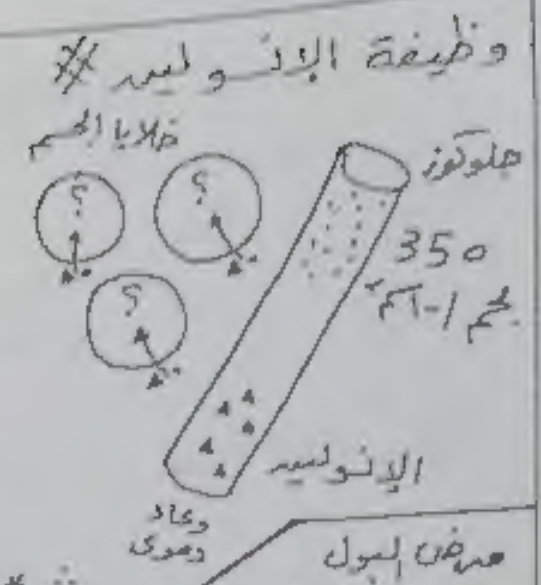 وظيفة الإنسولين #
خلايا الجسم
جلوكوز
؟
؟
؟
350
الإنسولين
وعاء
دموي
مرض البول